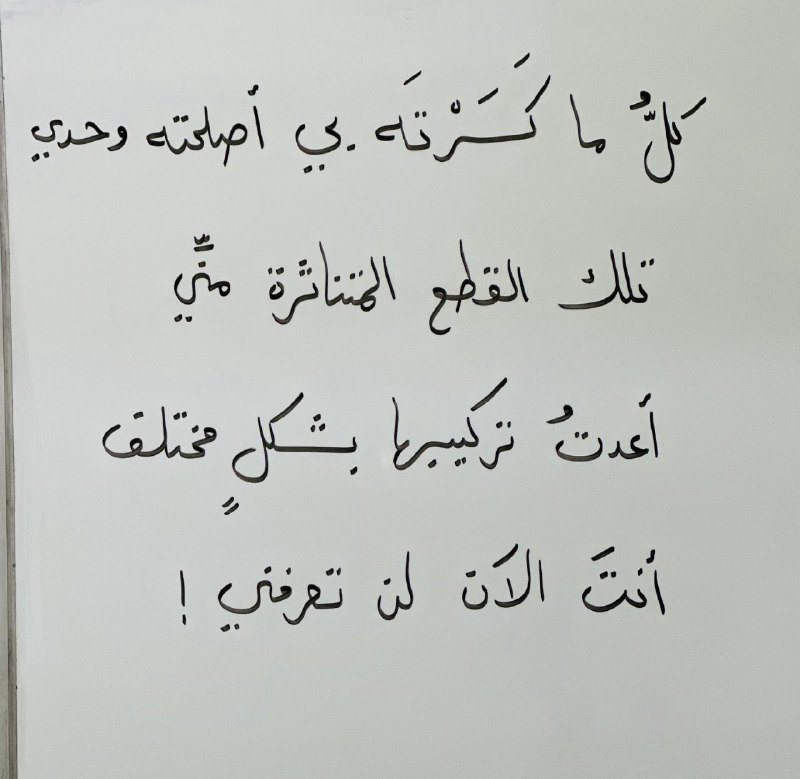 كلُّ ما كَسَرْتَه بي أصلحته وحدي
تلك القطع المتناثرة منّي
أعدتُ تركيبها بشكلٍ مختلف
أنتَ الآن لن تعرفني !